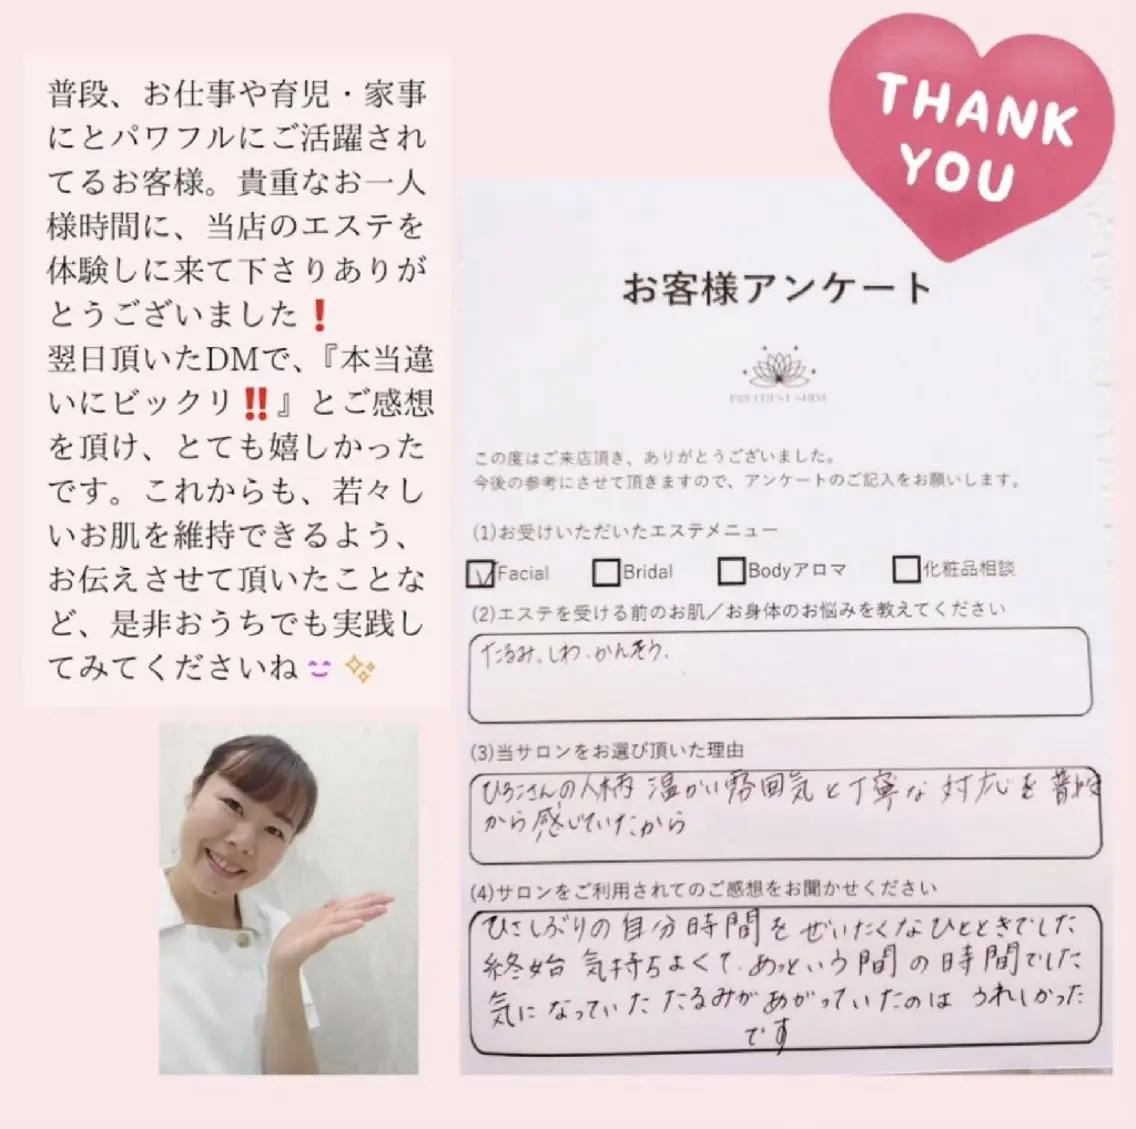 普段、お仕事や育児・家事
にとパワフルにご活躍され
てるお客様。貴重なお一人
様時間に、当店のエステを
体験しに来て下さりありが
とうございました❗
翌日頂いたDMで、『本当違
いにビックリ‼️』とご感想
を頂け、とても嬉しかった
です。これからも、若々し
いお肌を維持できるよう、
お伝えさせて頂いたことな
ど、是非おうちでも実践し
てみてくださいね
THANK
YOU
お客様アンケート
PRETTIEST SHINE
この度はご来店頂き、ありがとうございました。
今後の参考にさせて頂きますので、アンケートのご記入をお願いします。
(1)お受けいただいたエステメニュー
Facial Bridal Bodyアロマ 化粧品相談
(2)エステを受ける前のお肌／お身体のお悩みを教えてください
たるみ、しわ、かんそう、
(3)当サロンをお選び頂いた理由
ひろこさんの人柄 温かい雰囲気と丁寧な対応を普段
から感じていたから
(4)サロンをご利用されてのご感想をお聞かせください
ひさしぶりの自分時間をぜいたくなひとときでした
終始気持ちよくて、あっという間の時間でした
気になっていたたるみがあがっていたのはうれしかった
です